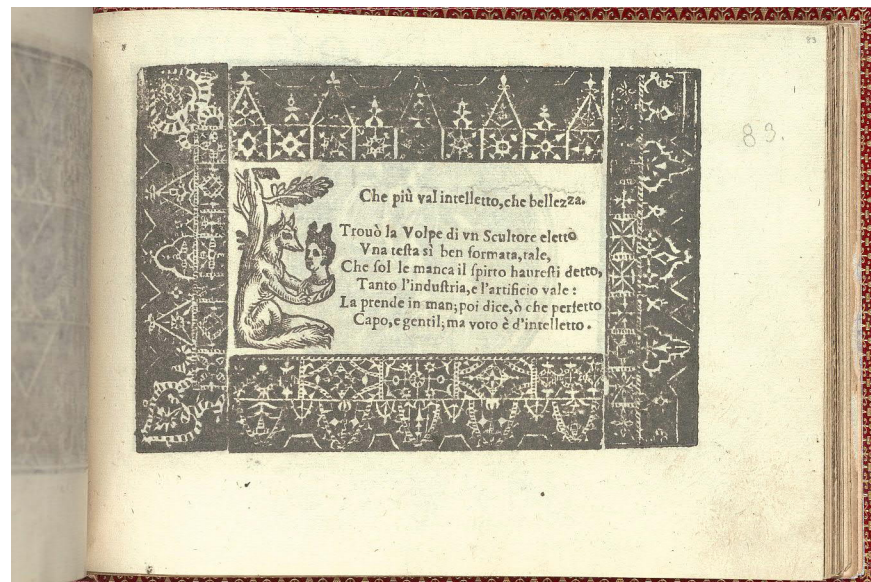 83
83.
Che più val intelletto, che bellezza.
Trouò la Volpe di vn Scultore eletto
Vna teſta sì ben formata, tale,
Che ſol le manca il ſpirto haureſti detto,
Tanto l'induſtria, e l'artificio vale :
La prende in man; poi dice, ò che perfetto
Capo, e gentil; ma voto è d'intelletto .